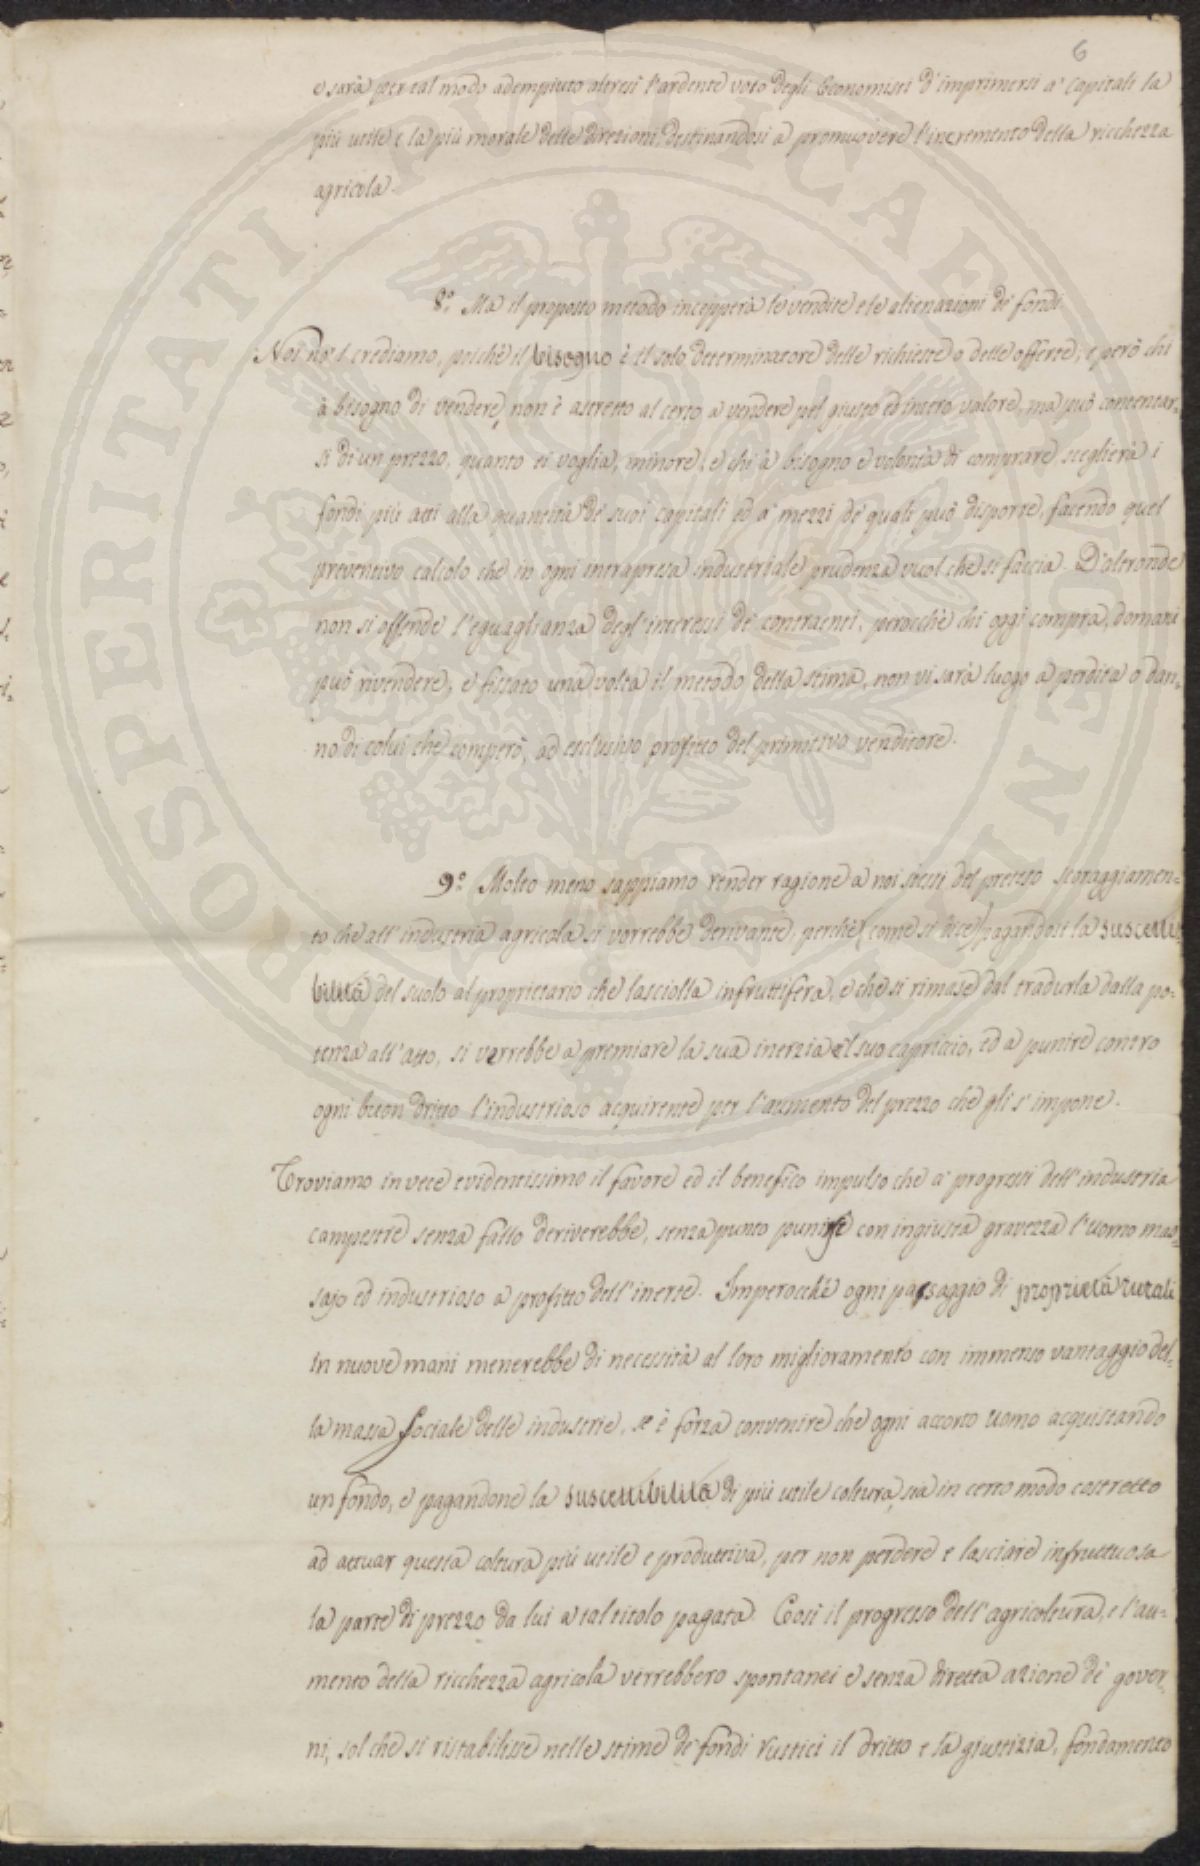 6
e sarà per tal modo adempiuto altresì l'ardente voto degli Economisti d'imprimersi a' capitali la
più utile e la più morale delle direzioni, destinandosi a promuovere l'incremento della ricchezza
agricola.
8.º Ma il proposto metodo incepperà le vendite e le alienazioni de' fondi.
Noi nol crediamo, poichè il bisogno è il solo determinatore delle richieste o delle offerte; e però chi
à bisogno di vendere, non è astretto al certo a vendere pel giusto ed intero valore, ma può contentar-
si di un prezzo, quanto ei voglia, minore; e chi à bisogno e volontà di comprare, sceglierà i
fondi più atti alla quantità de' suoi capitali ed a' mezzi de' quali può disporre, facendo quel
preventivo calcolo che in ogni intrapresa industriale prudenza vuol che si faccia. D'altronde
non si offende l'eguaglianza degl'interessi de' contraenti, perocchè chi oggi compra, domani
può rivendere, e fissato una volta il metodo della stima, non vi sarà luogo a perdita o dan-
no di colui che comperò, ad esclusivo profitto del primitivo venditore.
9.º Molto meno sappiamo render ragione a noi stessi del preteso scoraggiamen-
to che all'industria agricola si vorrebbe derivante, perchè (come si dice) pagandosi la suscetti-
bilità del suolo al proprietario che lasciolla infruttifera, e che si rimase dal tradurla dalla po-
tenza all'atto, si verrebbe a premiare la sua inerzia e 'l suo capriccio, ed a punire contro
ogni buon dritto l'industrioso acquirente per l'aumento del prezzo che gli s'impone.
Troviamo in vece evidentissimo il favore ed il benefico impulso che a' progressi dell'industria
campestre senza fallo deriverebbe, senza punto punire con ingiusta gravezza l'uomo mas-
sajo ed industrioso a profitto dell'inerte. Imperocchè ogni passaggio di proprietà rurali
in nuove mani menerebbe di necessità al loro miglioramento con immenso vantaggio del-
la massa sociale delle industrie, se è forza convenire che ogni accorto uomo acquistando
un fondo, e pagandone la suscettibilità di più utile coltura, sia in certo modo costretto
ad attuar questa coltura più utile e produttiva, per non perdere e lasciare infruttuosa
la parte di prezzo da lui a tal titolo pagata. Così il progresso dell'agricoltura, e l'au-
mento della ricchezza agricola verrebbero spontanei e senza diretta azione de' gover-
ni, sol che si ristabilisse nelle stime de' fondi rustici il dritto e la giustizia, fondamento
PROSPERITATI PUBLICAE AUGENDAE